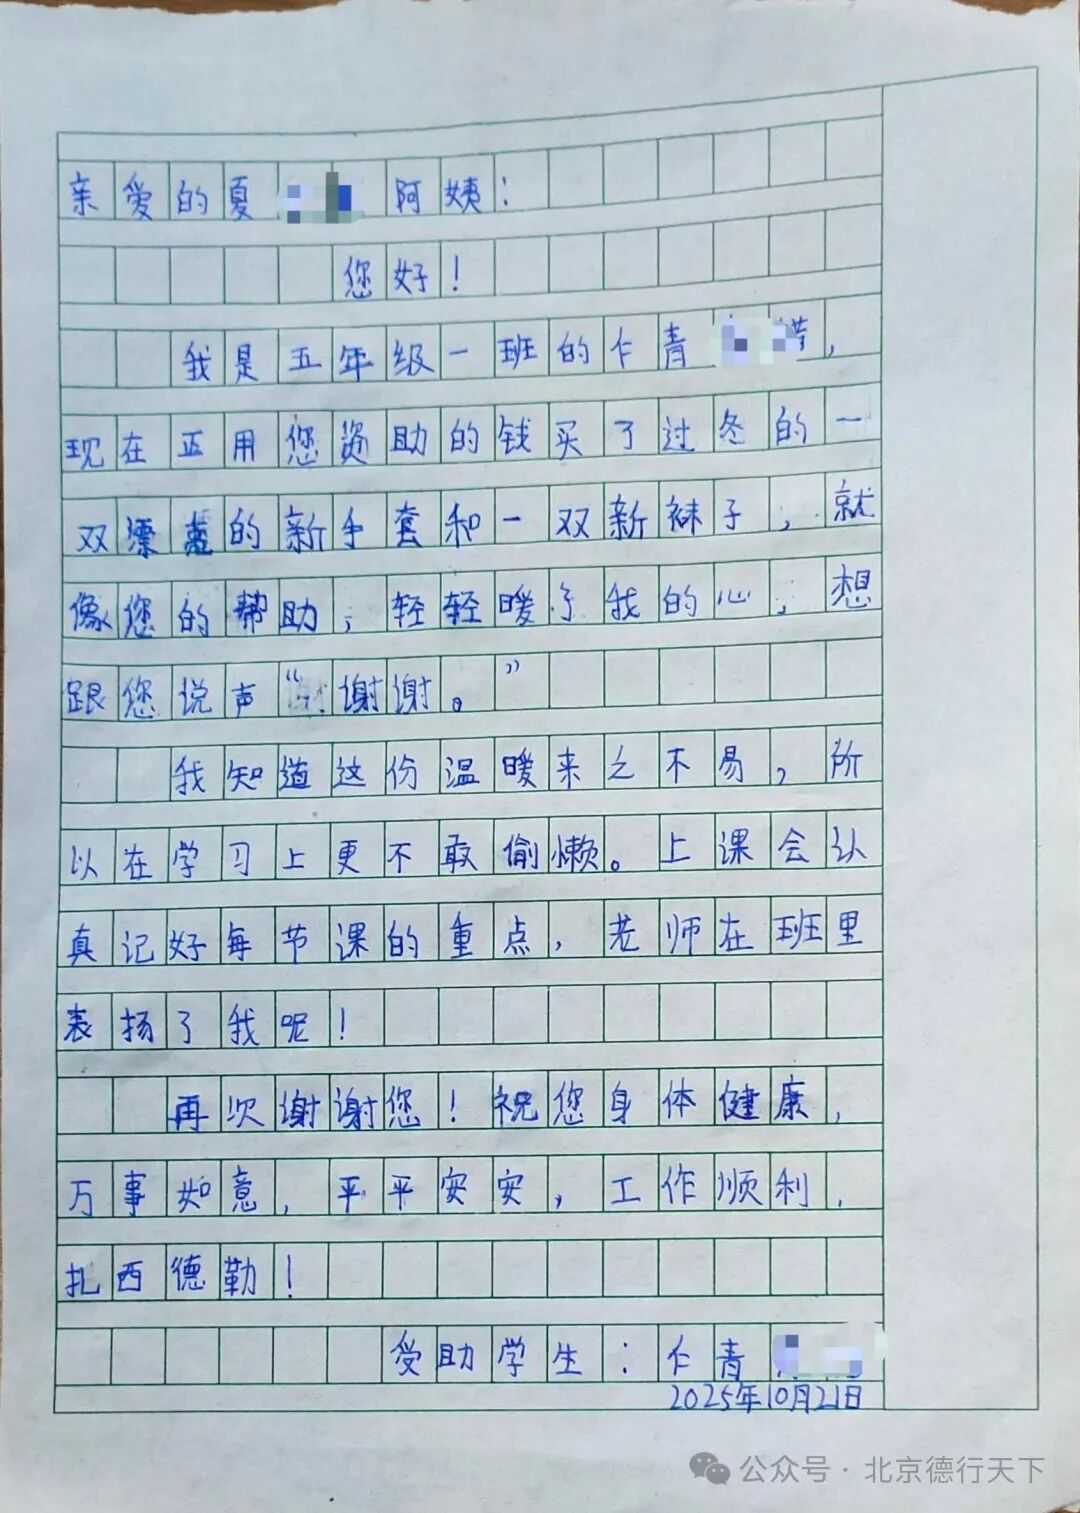 亲爱的夏 阿姨：
您好！
我是五年级一班的仁青 措，
现在正用您资助的钱买了过冬的一
双漂亮的新手套和一双新袜子，就
像您的帮助，轻轻暖了我的心，想
跟您说声“谢谢。”
我知道这份温暖来之不易，所
以在学习上更不敢偷懒。上课会认
真记好每节课的重点，老师在班里
表扬了我呢！
再次谢谢您！祝您身体健康，
万事如意，平平安安，工作顺利，
扎西德勒！
受助学生：仁青
2025年10月21日
公众号·北京德行天下